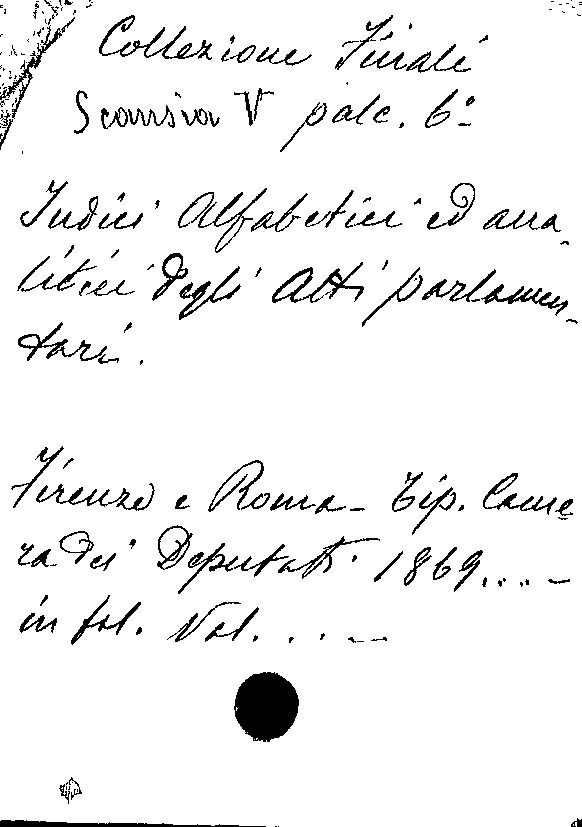 Collezione Finali
Scansia V palc. 6º
Indici Alfabetici ed ana-
litici degli Atti parlamen-
tari.
Firenze e Roma - Tip. Came
ra dei Deputati 1869... -
in fol. Vol. . . . -